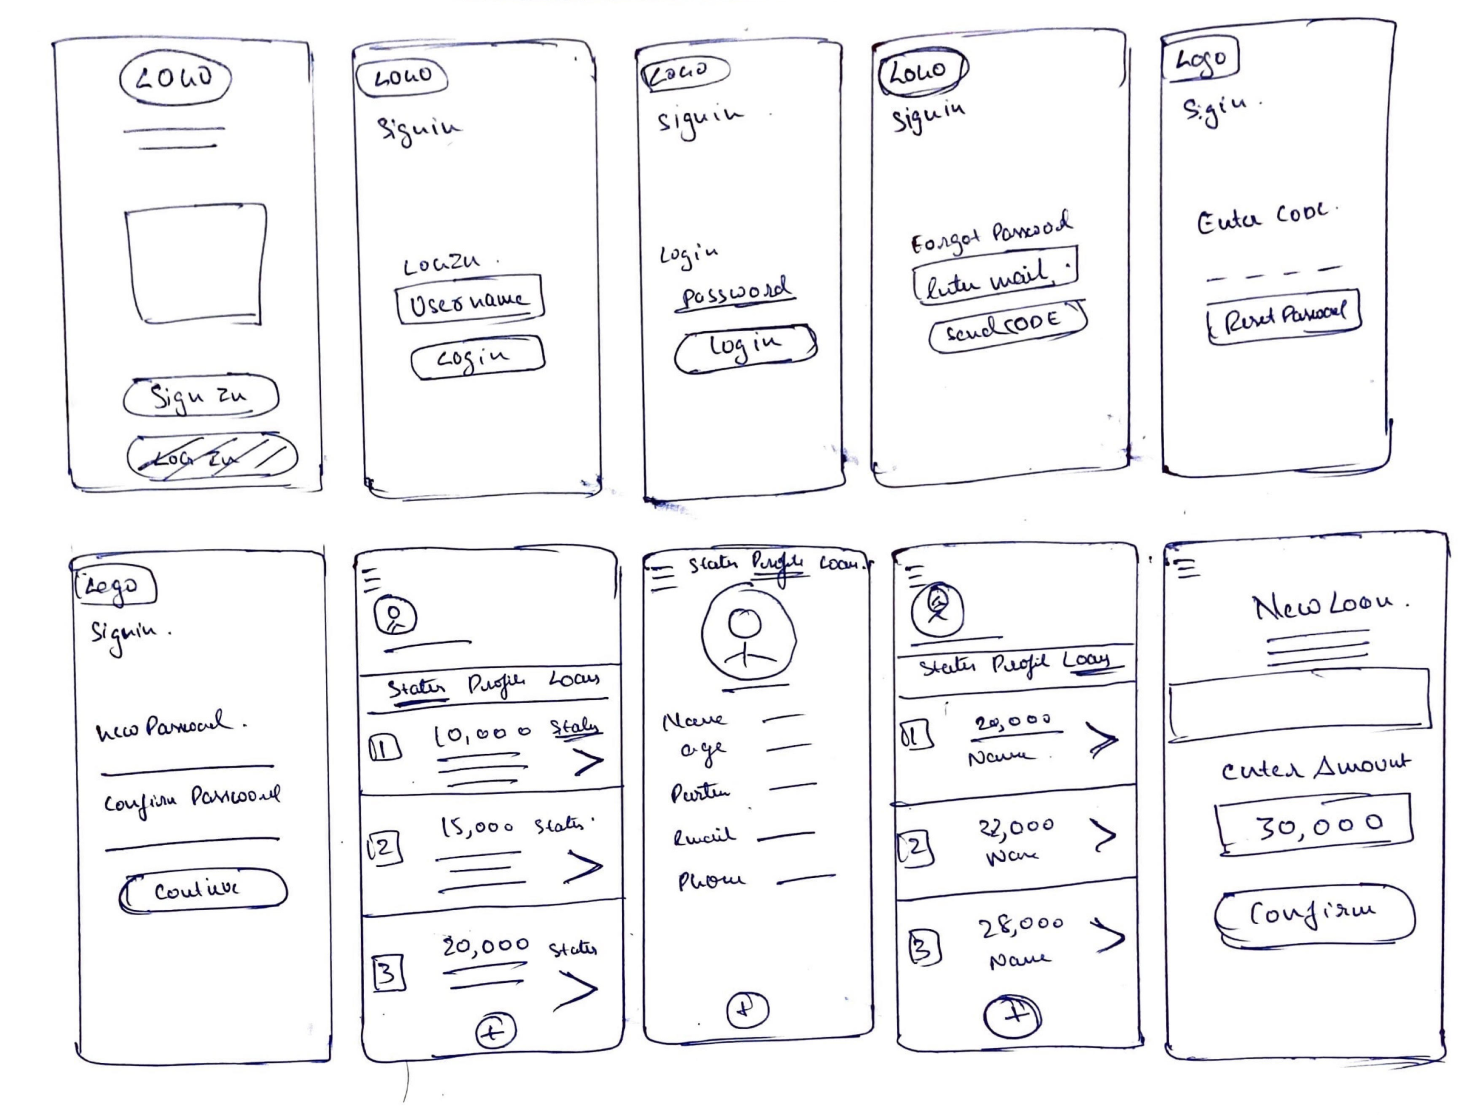 LOGO
Sign In
Log In
LOGO
Signin
LOGIN.
Username
Login
LOGO
Signin
Login
Password
Login
LOGO
Signin
Forgot Password
Enter mail.
Send CODE
Logo
Sigin.
Enter CODE.
Reset Password
Logo
Signin.
New Password.
Confirm Password
Continue
Status Profile Loans
1 10,000 Status
2 15,000 Status
3 20,000 Status
+
Status Profile Loan.
Name
age
Email
Phone
+
Status Profile Loans
1 20,000
Name
2 22,000
Name
3 28,000
Name
+
New Loan.
enter Amount
30,000
Confirm